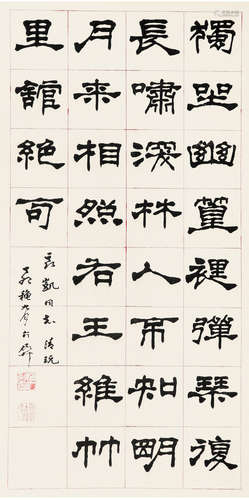 獨坐幽篁裡彈琴復
長嘯深林人不知明
月来相照右王維竹
里館絕句
凱同志清玩